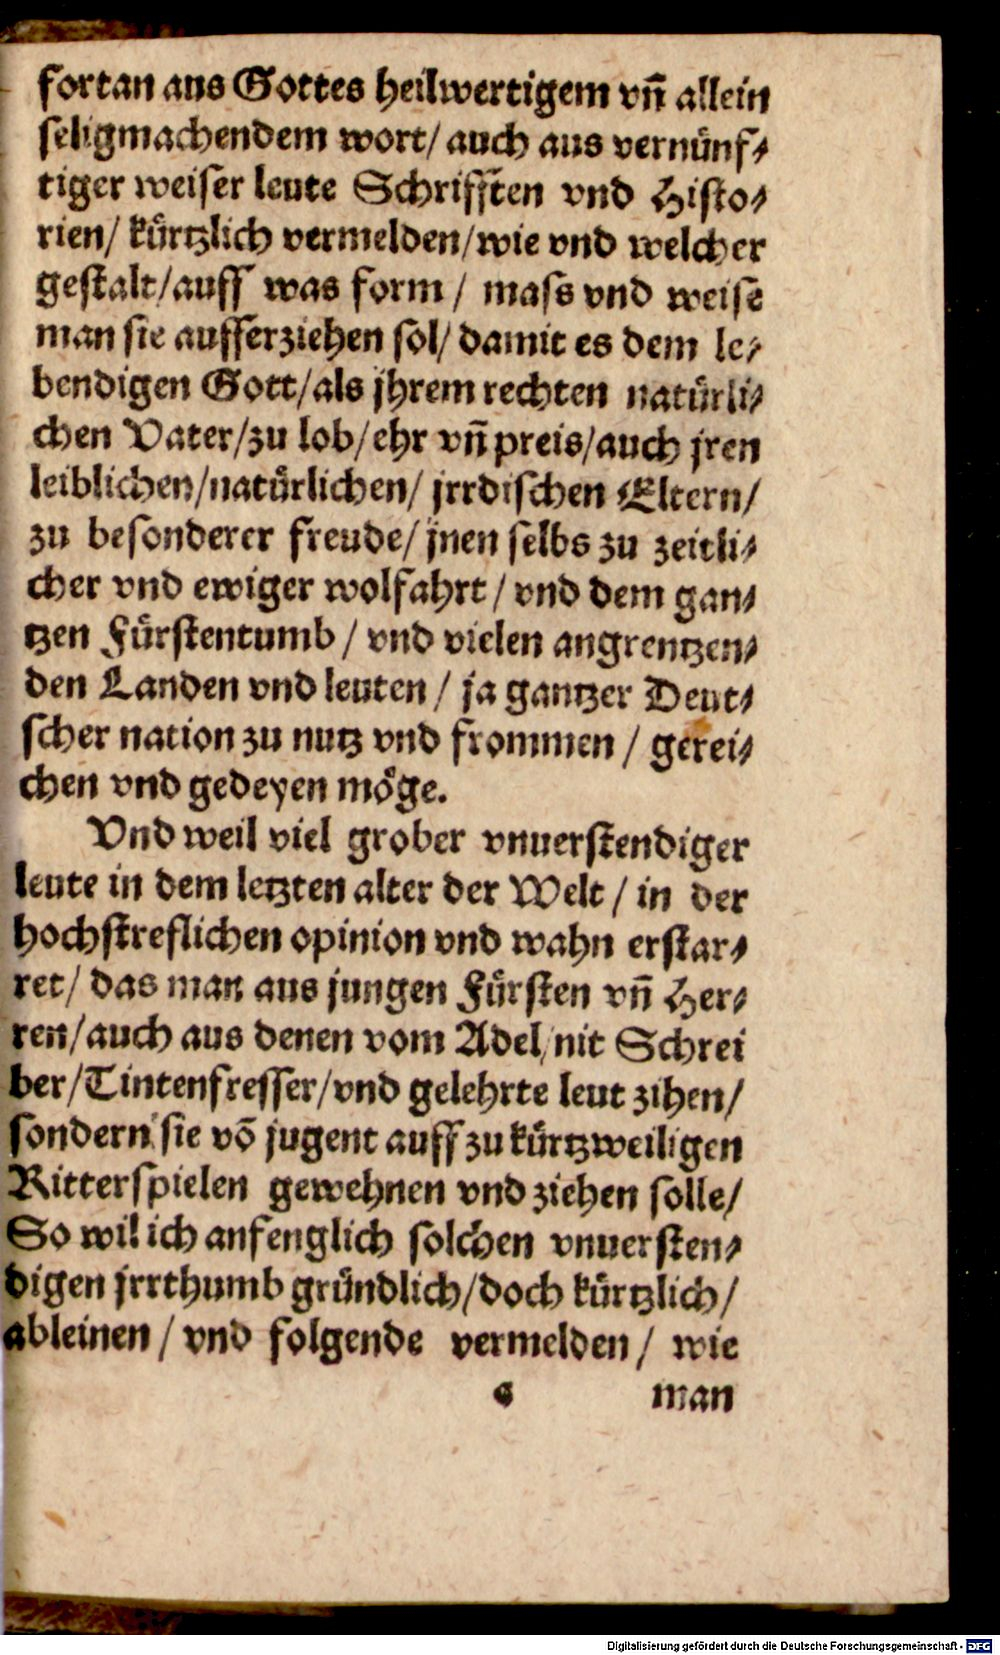 fortan aus Gottes heilwertigem vñ allein
seligmachendem wort/ auch aus vernünf⸗
tiger weiser leute Schrifften vnd Histo⸗
rien/ kürtzlich vermelden/ wie vnd welcher
gestalt/ auff was form / mass vnd weise
man sie aufferziehen sol/ damit es dem le⸗
bendigen Gott/ als jhrem rechten natürli⸗
chen Vater/ zu lob/ ehr vñ preis/ auch jren
leiblichen/ natürlichen/ jrrdischen Eltern/
zu besonderer freude/ jnen selbs zu zeitli⸗
cher vnd ewiger wolfahrt / vnd dem gan⸗
tzen Fürstentumb / vnd vielen angrentzen⸗
den Landen vnd leuten / ja gantzer Deut⸗
scher nation zu nutz vnd frommen / gerei⸗
chen vnd gedeyen möge.
Vnd weil viel grober vnuerstendiger
leute in dem letzten alter der Welt / in der
hochstreflichen opinion vnd wahn erstar⸗
ret/ das man aus jungen Fürsten vñ Her⸗
ren/ auch aus denen vom Adel/ nit Schrei
ber/ Tintenfresser/ vnd gelehrte leut zihen/
sondern sie võ jugent auff zu kürtzweiligen
Ritterspielen gewehnen vnd ziehen solle/
So wil ich anfenglich solchen vnuersten⸗
digen jrrthumb gründlich/ doch kürtzlich/
ableinen / vnd folgende vermelden / wie
man
Digitalisierung gefördert durch die Deutsche Forschungsgemeinschaft - DFG